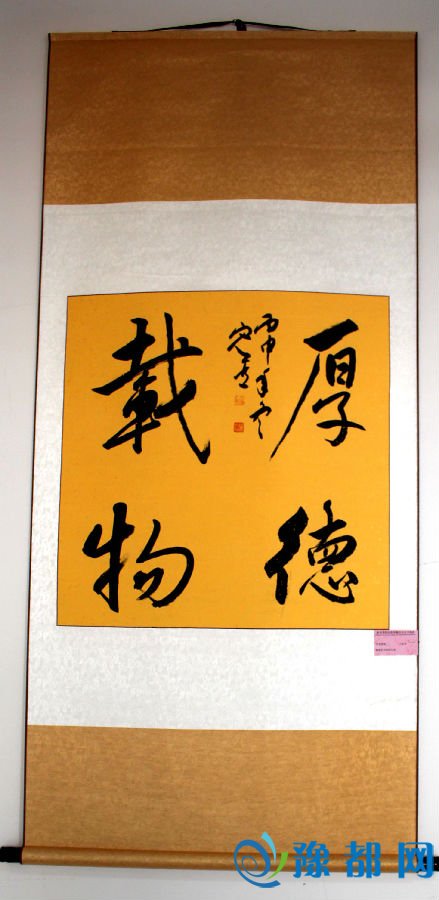 厚德
載物
丙申年冬
豫都网